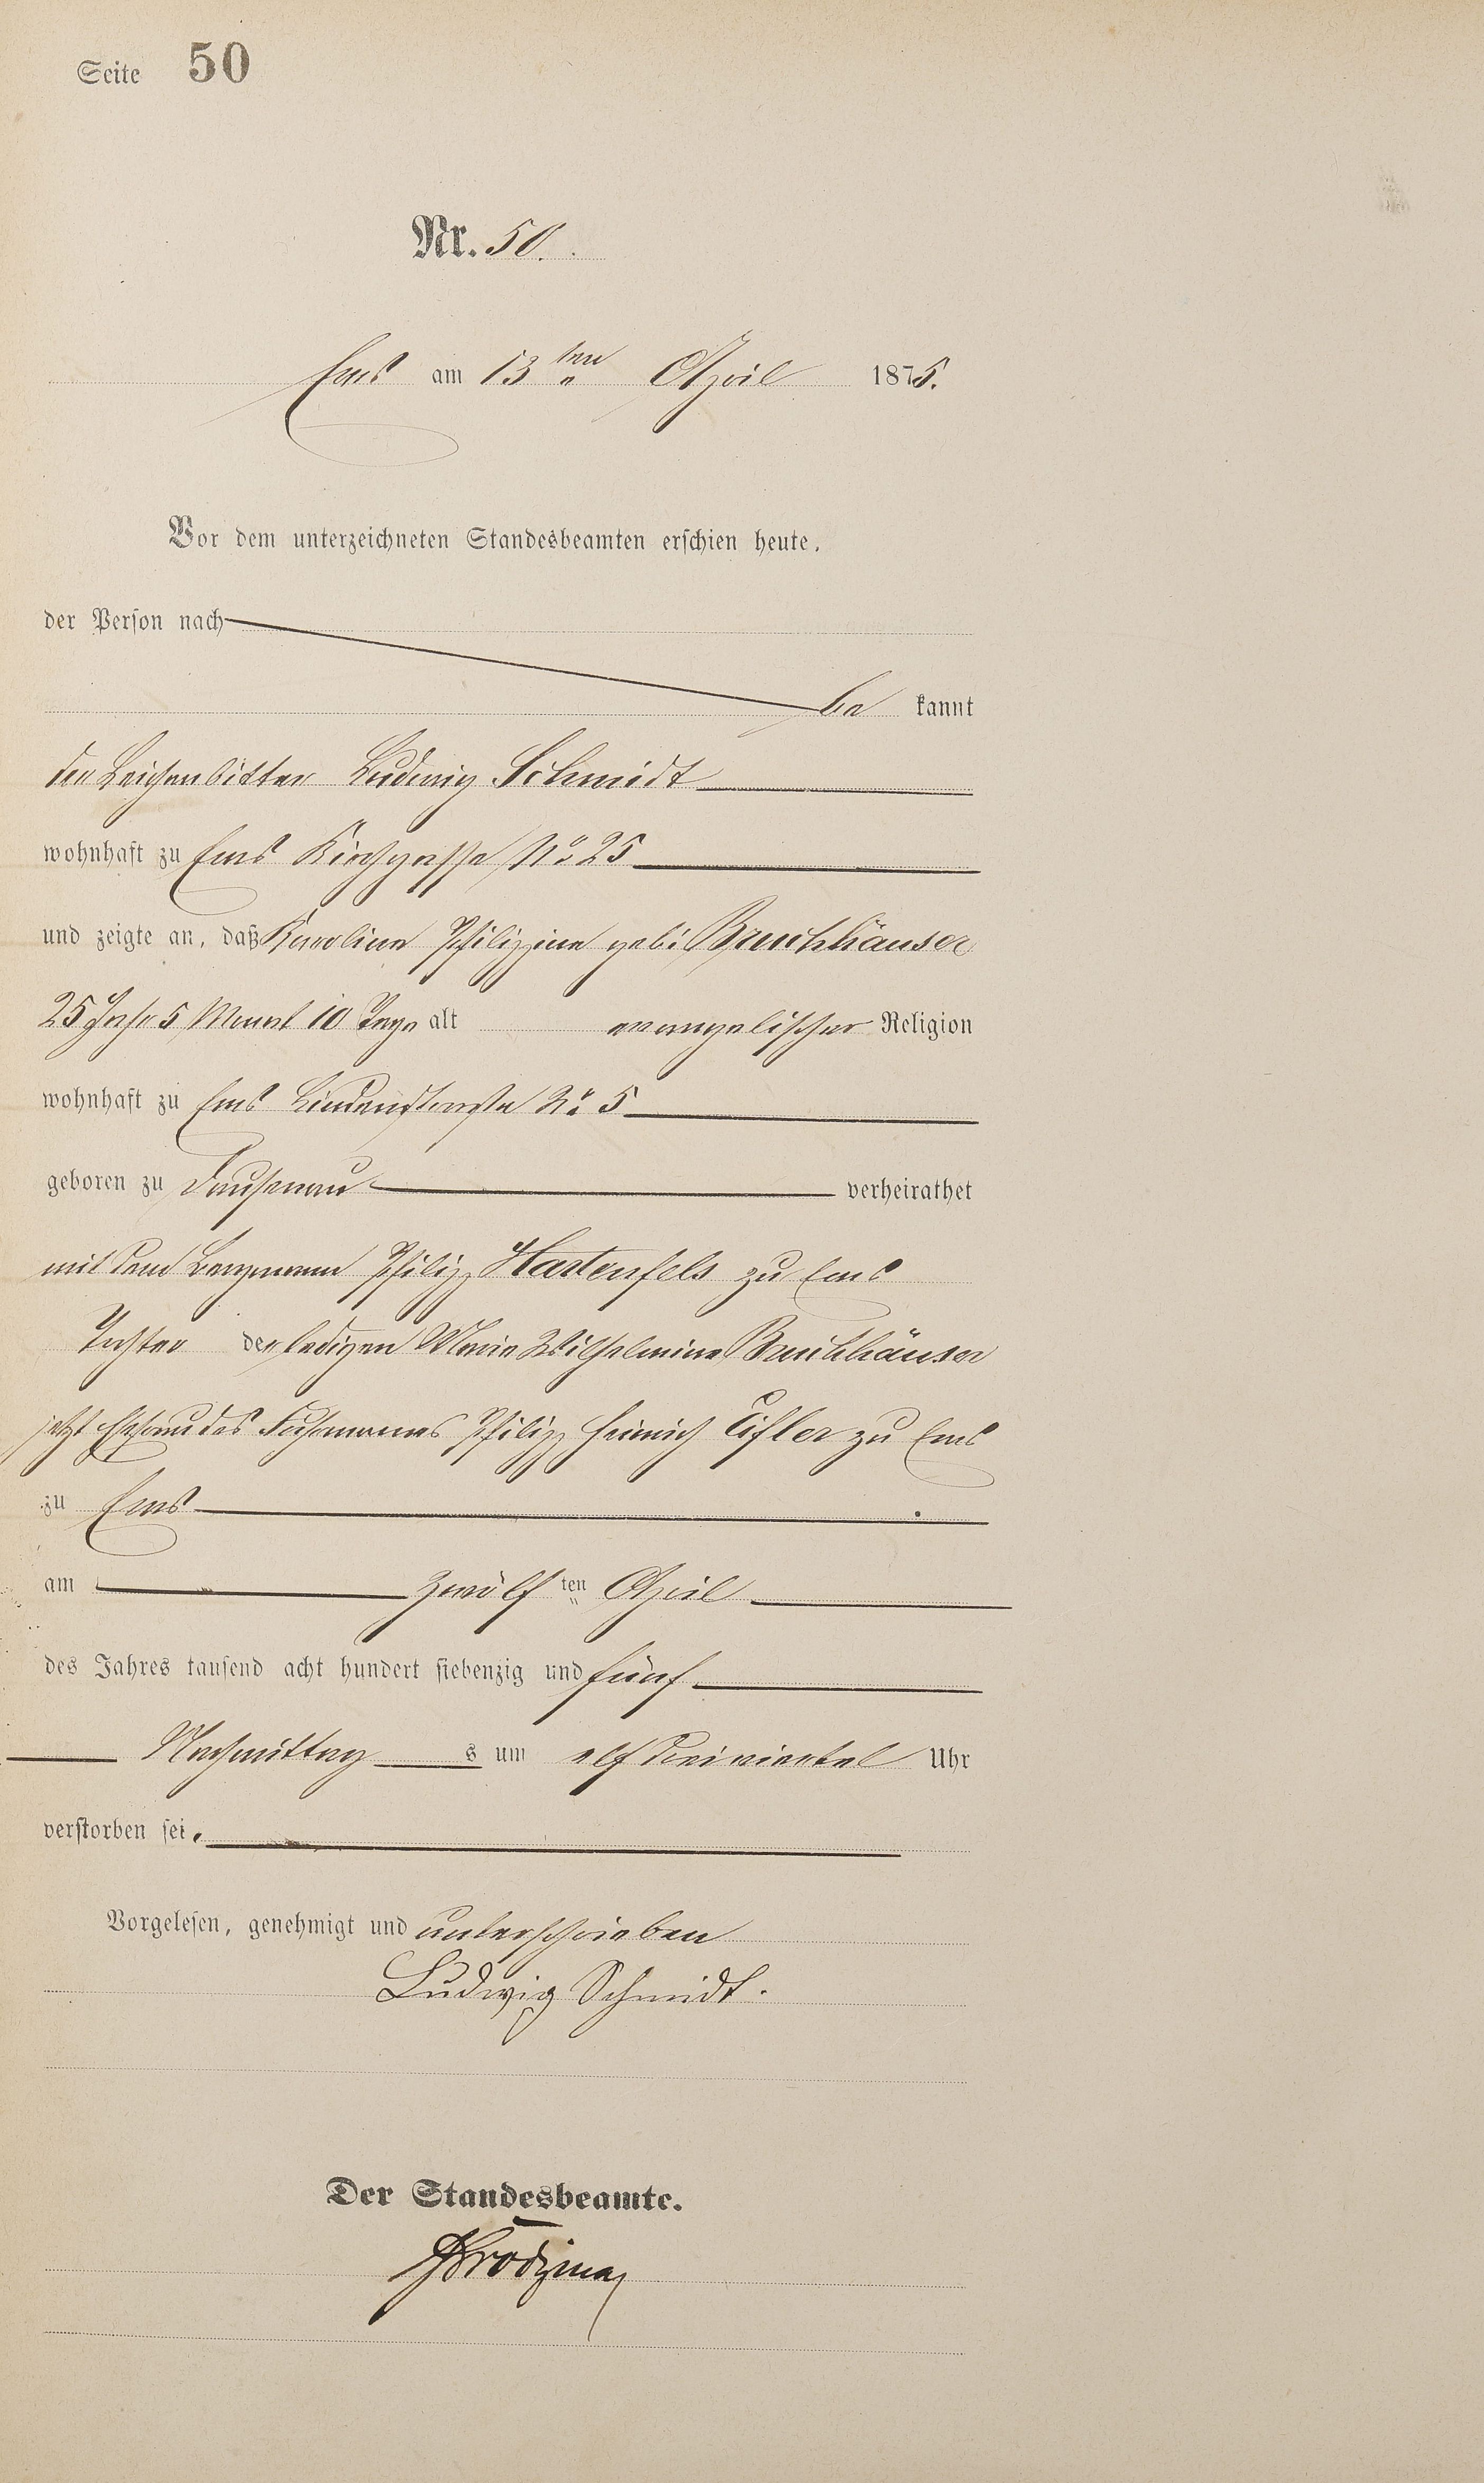 Seite 50
Nr. 50.
Ems am 13ten April 1875.
Vor dem unterzeichneten Standesbeamten erschien heute,
der Person nach
be kannt
der Leichenbitter Ludwig Schmidt
wohnhaft zu Ems Kirchgasse No 25
und zeigte an, daß Karoline Philippine geb: Bruchhäuser
25 Jahr 5 Monat 10 Tage alt evangelischer Religion
wohnhaft zu Ems Lindenstrasse No 5
geboren zu Dausenau verheirathet
mit dem Bergmann Philipp Hartenfels zu Ems
Tochter der ledigen Marie Wilhelmine Bruchhäuser
jetzt Ehefrau des Fuhrmannes Philipp Heinrich zu Ems
zu Ems
am zwölf ten April
des Jahres tausend acht hundert siebenzig und fünf
Nachmittag s um elf dreiviertel Uhr
verstorben sei.
Vorgelesen, genehmigt und unterschrieben
Ludwig Schmidt.
Der Standesbeamte.